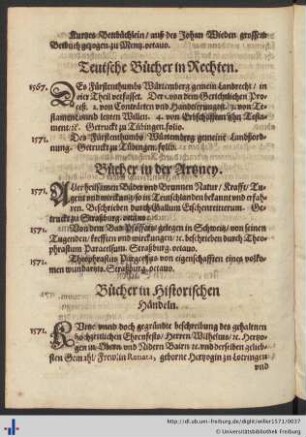 Kurtzes Betbüchlein / auß des Johan Wieden grossen
Betbuch gezogen. zu Mentz. octauo.
Teutsche Bücher in Rechten.
1567. DEs Fürstenthumbs Würtemberg gemein Landrecht / in
vier Theil verfasset. Der 1. von dem Gerichtlichen Pro-
ceß. 2. von Contracten und Handtierungen. 3. von Te-
stament und letzten Willen. 4. von Erbschafften ohn Testa-
ment / ꝛc. Getruckt zu Tübingen. folio.
1571. Des Fürstenthumbs Würtemberg gemeine Landsord-
nung. Getruckt zu Tübingen. folio.
Bücher in der Artzney.
1571. ALler heilsamen Bäder und Brunnen Natur / Krafft / Tu-
gent und wirckung / so in Teutschlanden bekannt und erfah-
ren. Beschrieben durch Gallum Etschenreiterum. Ge-
truckt zu Straßburg. octauo.
1571. Von dem Bad Pfäffers / gelegen in Schweitz / von seinen
Tugenden / krefften und wirckungen / ꝛc. beschrieben durch Theo-
phrastum Paracelsum. Straßburg. octauo.
1571. Theophrastum von eigenschafften eines volkom-
men wundartzts. Straßburg. octauo.
Bücher in Historischen
Händeln.
1571. KUrtze unnd doch gegründte beschreibung des gehaltenen
hochzeitlichen Ehrenfests / Herren Wilhelms / ꝛc. Hertzo-
gen in Obern und Nidern Baiern ꝛc. und derselben gelieb-
sten Gemahl / Frewlin Renata, geborne Hertzogin zu Lottringen /
und
http://dl.ub.uni-freiburg.de/diglit/willer1571/0037
© Universitätsbibliothek Freiburg